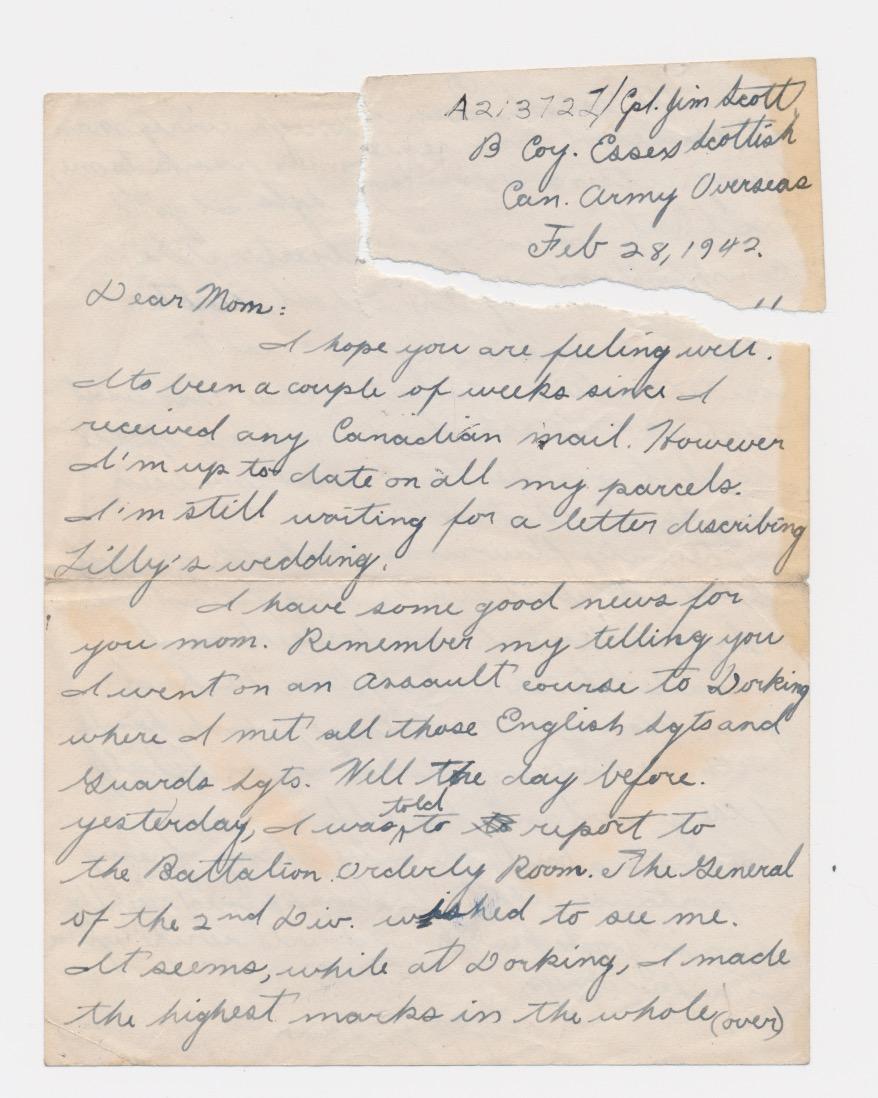 A213727/Cpl. Jim Scott
B Coy. Essex Scottish
Can. Army Overseas
Feb 28, 1942.
Dear Mom:
I hope you are feeling well.
Its been a couple of weeks since I
received any Canadian mail. However
I'm up to date on all my parcels.
I'm still waiting for a letter describing
Lilly's wedding.
I have some good news for
you mom. Remember my telling you
I went on an assault course to Dorking
where I met all those English Sgts and
Guards Sgts. Well the day before.
yesterday, I was told to report to
the Battalion Orderly Room. The General
of the 2nd Div. wished to see me.
It seems, while at Dorking, I made
the highest marks in the whole (over)